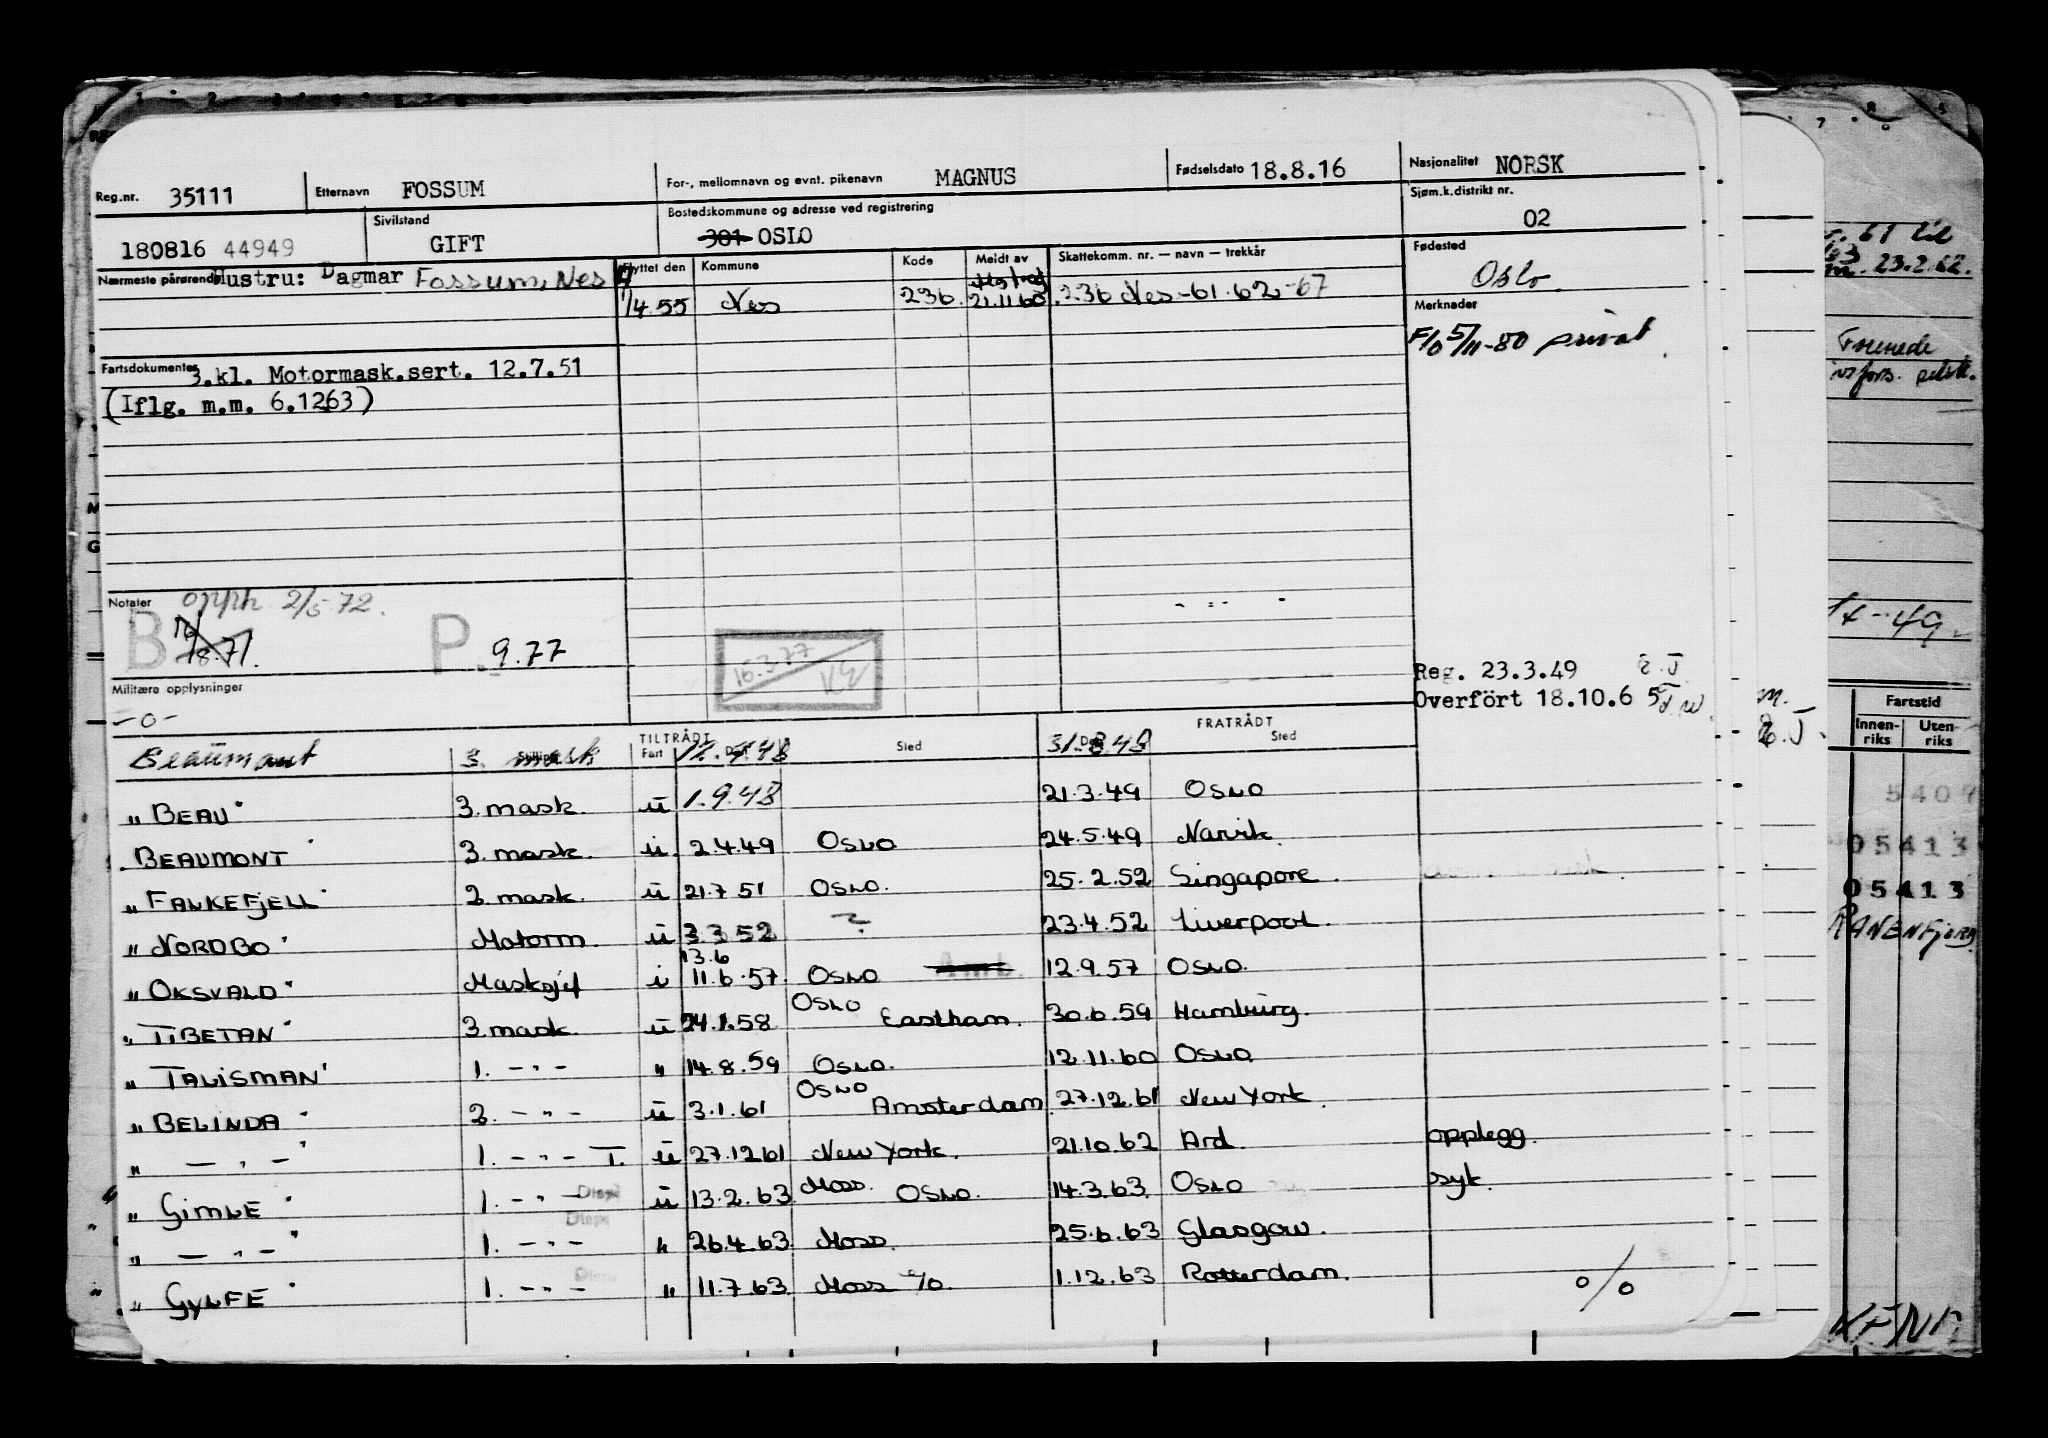 Reg.nr. 35111 Etternavn FOSSUM For-, mellomnavn og evnt. pikenavn MAGNUS Fødselsdato 18.8.16 Nasjonalitet NORSK
180816 44949 Sivilstand GIFT Bostedskommune og adresse ved registrering 301 OSLO Sjøm.k.distrikt nr. 02
Nærmeste pårørende Hustru: Dagmar Fossum, Nes Flyttet den Kommune Kode Meldt av Skattekomm. nr. — navn — trekkår Fødested Oslo
1/4 55 Nes 236 21.11.60 236 Nes -61-62-67
Merknader
F/O 5/11-80 privat
Fartsdokumenter 3.kl. Motormask.sert. 12.7.51
(Iflg. m.m. 6.1263)
Notater opph 2/5 72.
B 8.71. P. 9.77
16.3.77
Militære opplysninger
-o-
Reg. 23.3.49
Overført 18.10.6 5
TILTRÅDT FRATRÅDT
Stilling Fart Dato Sted Dato Sted
Beaumont 3. mask 48 31.8.48
" BEAU" 3. mask. u 1.9.48 21.3.49 OSLO
BEAUMONT 3. mask. u. 2.4.49 OSLO 24.5.49 Narvik.
" FALKEFJELL" 2. mask. u 21.7 51 OSLO. 25.2.52 Singapore.
" NORDBO" Motorm. u 3.3.52 ? 23.4.52 Liverpool.
13.6
" OKSVALD" Masksjef i 11.6.57. OSLO 12.9.57 OSLO.
" TIBETAN" 3. mask. u 24.1.58 OSLO Eastham. 30.6.59 Hamburg.
" TALISMAN" 1. - " - " 14.8.59 OSLO. 12.11.60 OSLO
" BELINDA" 2. - " - u 3.1.61 OSLO Amsterdam. 27.12.61 New York.
" — " — " 1. - " - T. u 27.12 61 New York. 21.10.62 Ard. opplegg.
" GIMLE" 1. - " - u 13.2.63 Moss. OSLO. 14.3.63. OSLO syk.
" — " — " 1. - " - " 26.4.63. Moss. 25.6.63 Glasgow.
" GYLFE" 1. - " - " 11.7.63. Moss 1.12.63 Rotterdam.
o/o
23.2.62.
Fartstid
Innen-riks Uten-riks
5409
05413
05413
RANENFJORD